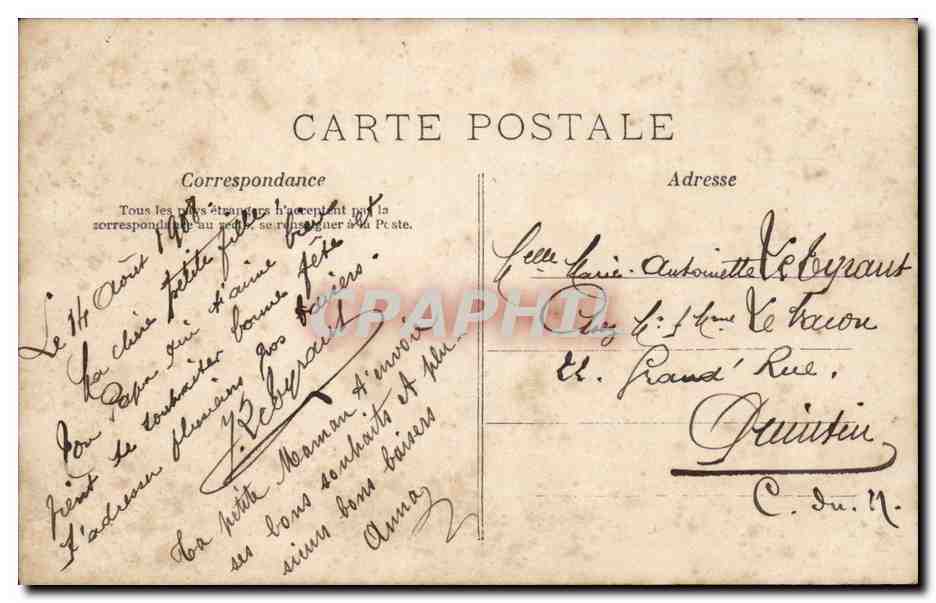 CARTE POSTALE
Correspondance
Tous les pays étrangers n'acceptent pas la
correspondance au recto, se renseigner à la Poste.
Le 14 Août 1908.
Ma chère petite fille,
Ton Papa qui t'aime bien
vient te souhaiter bonne fête et
t'adresser plusieurs gros baisers.
Ta petite Maman t'envoie
ses bons souhaits et plu-
sieurs bons baisers
Anna
Adresse
Melle Marie-Antoinette
Chez Mr & Mme
22. Grand' Rue.
Quintin
C. du N.
CPAPHIL